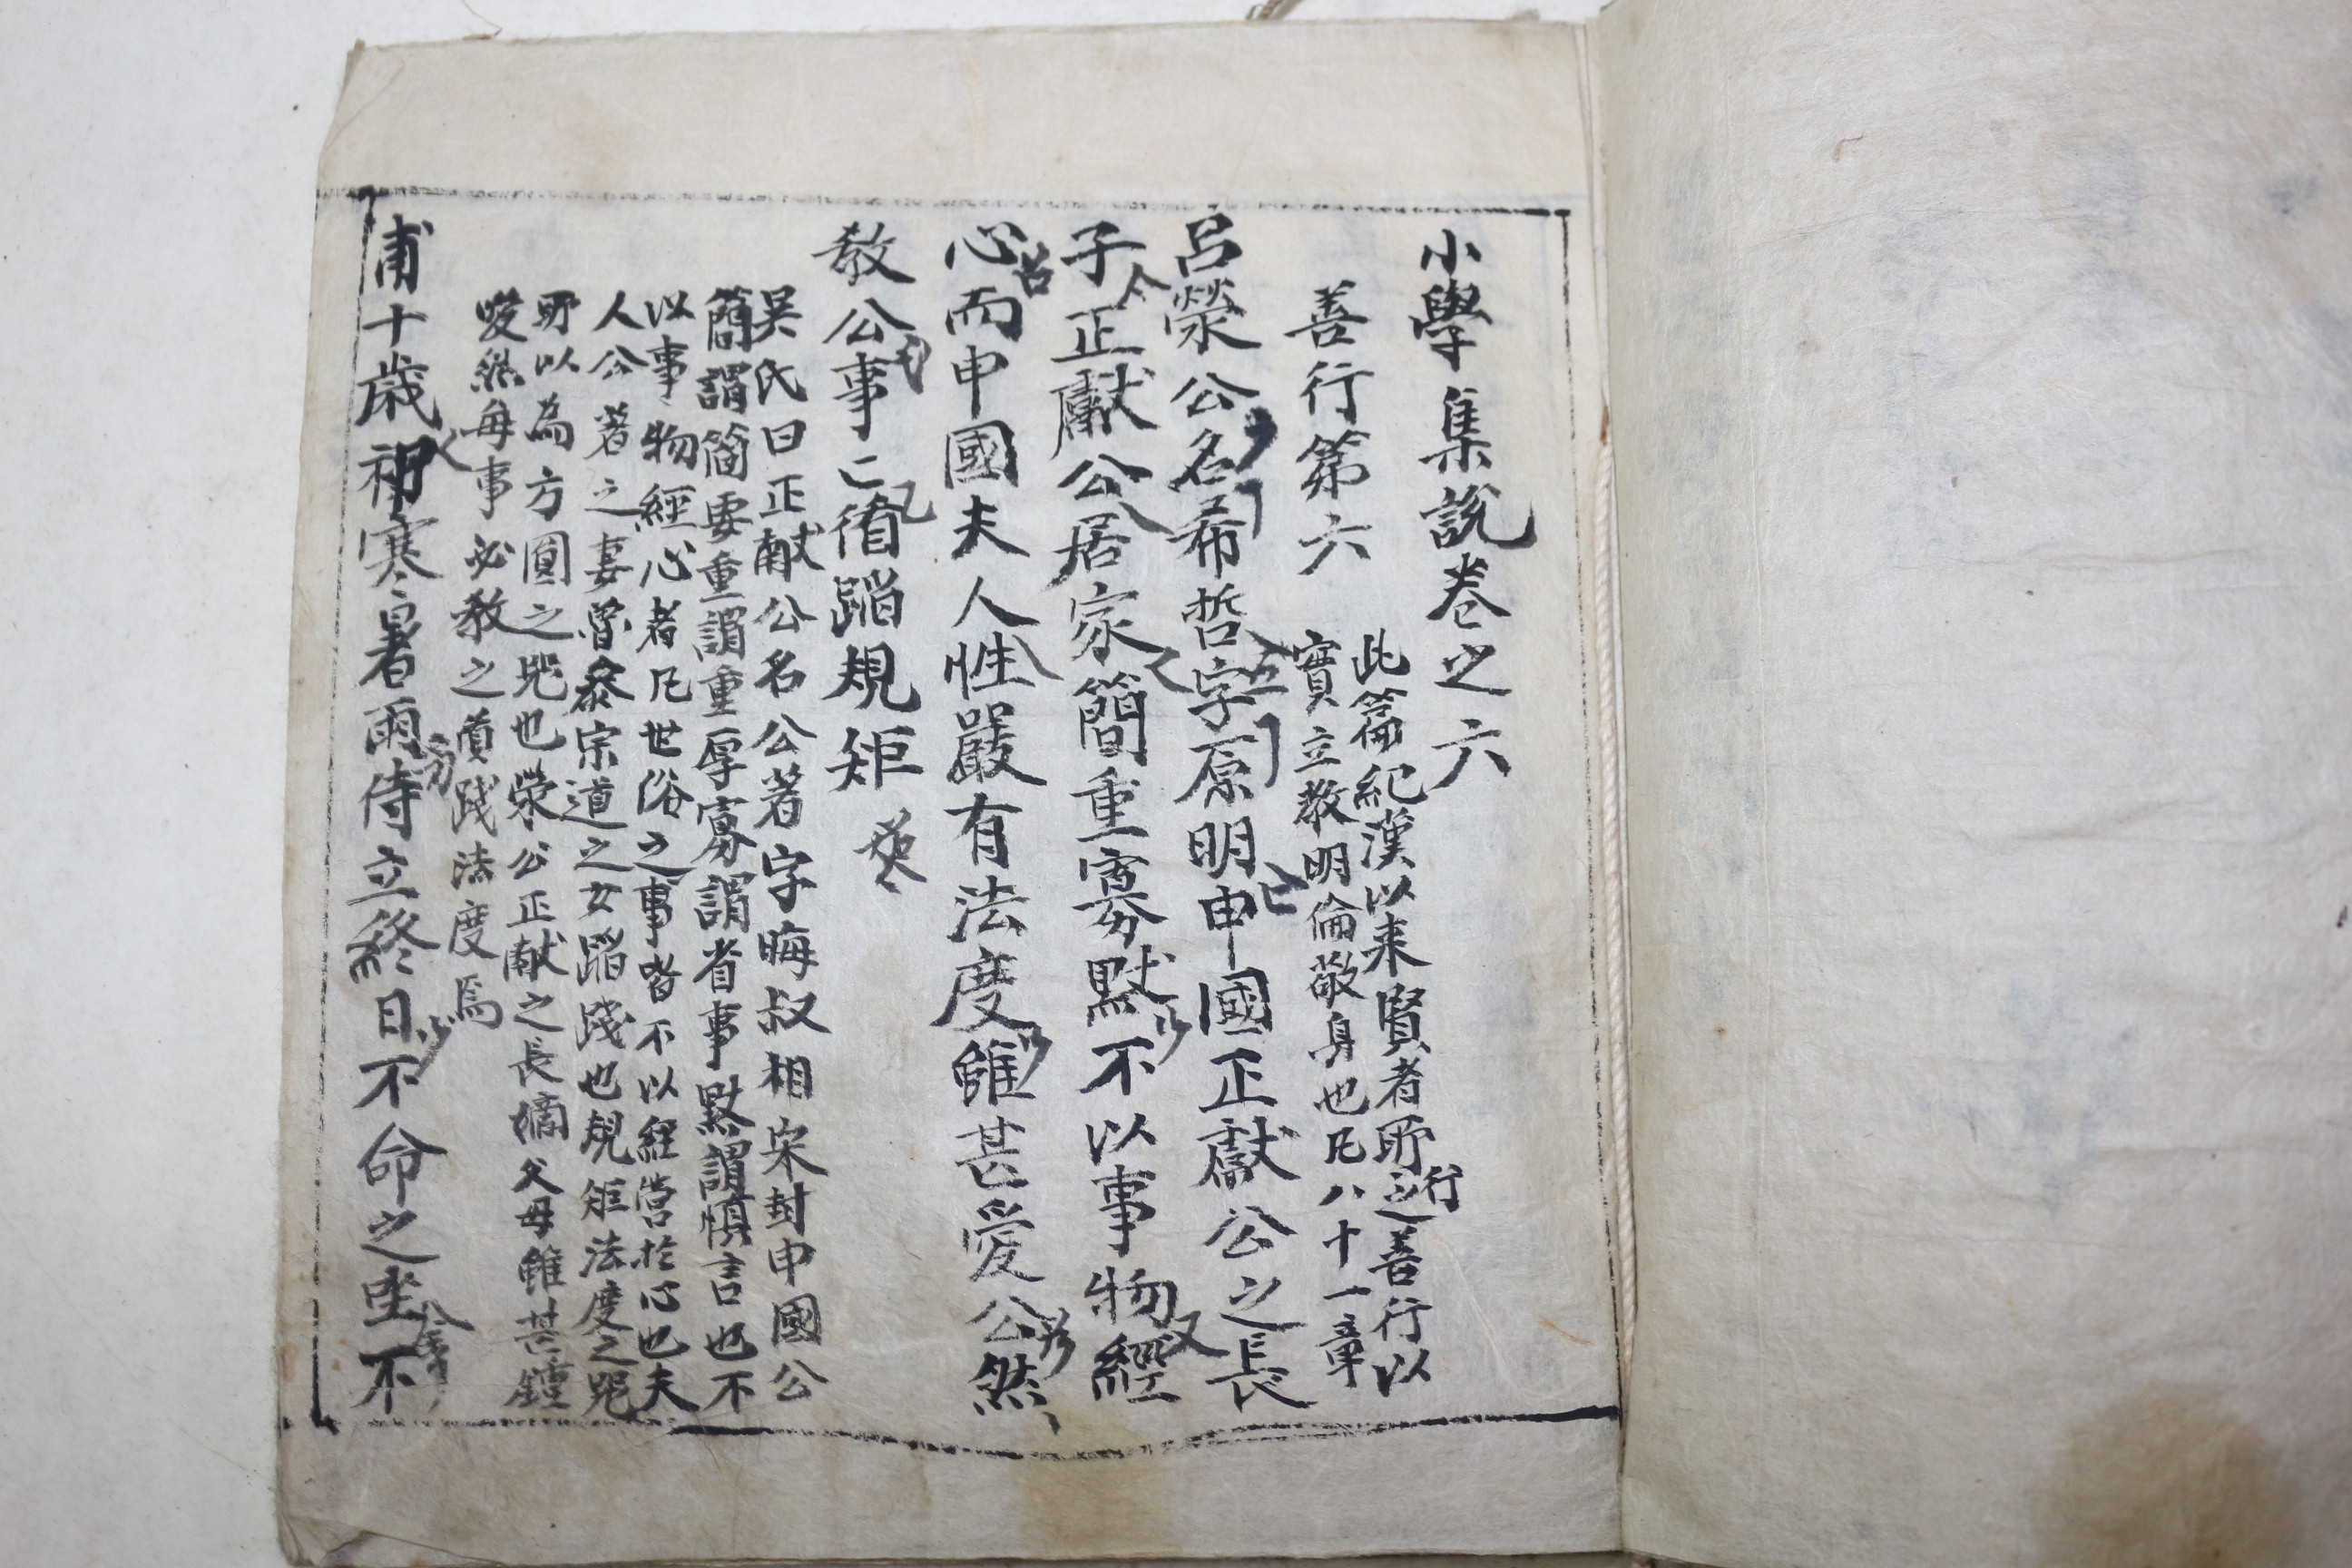 小學集說卷之六
善行第六
此篇紀漢以来賢者所行之善行以
實立教明倫敬身也凡八十一章
呂滎公名希哲字原明申國正獻公之長
子正獻公居家簡重寡默不以事物經
心而申國夫人性嚴有法度雖甚愛公然
教公事〻循蹈規矩
吳氏曰正献公名公著字晦叔相宋封申國公
簡謂簡要重謂重厚寡謂省事默謂愼言也不
以事物經心者凡世俗之事皆不以經营於心也夫
人公著之妻曾叅宗道之女蹈踐也規矩法度之噐
所以為方圓之噐也荣公正献之長嫡父母雖甚鍾
愛然每事必教之循踐法度焉
甫十歲祁寒暑雨侍立終日不命之坐不